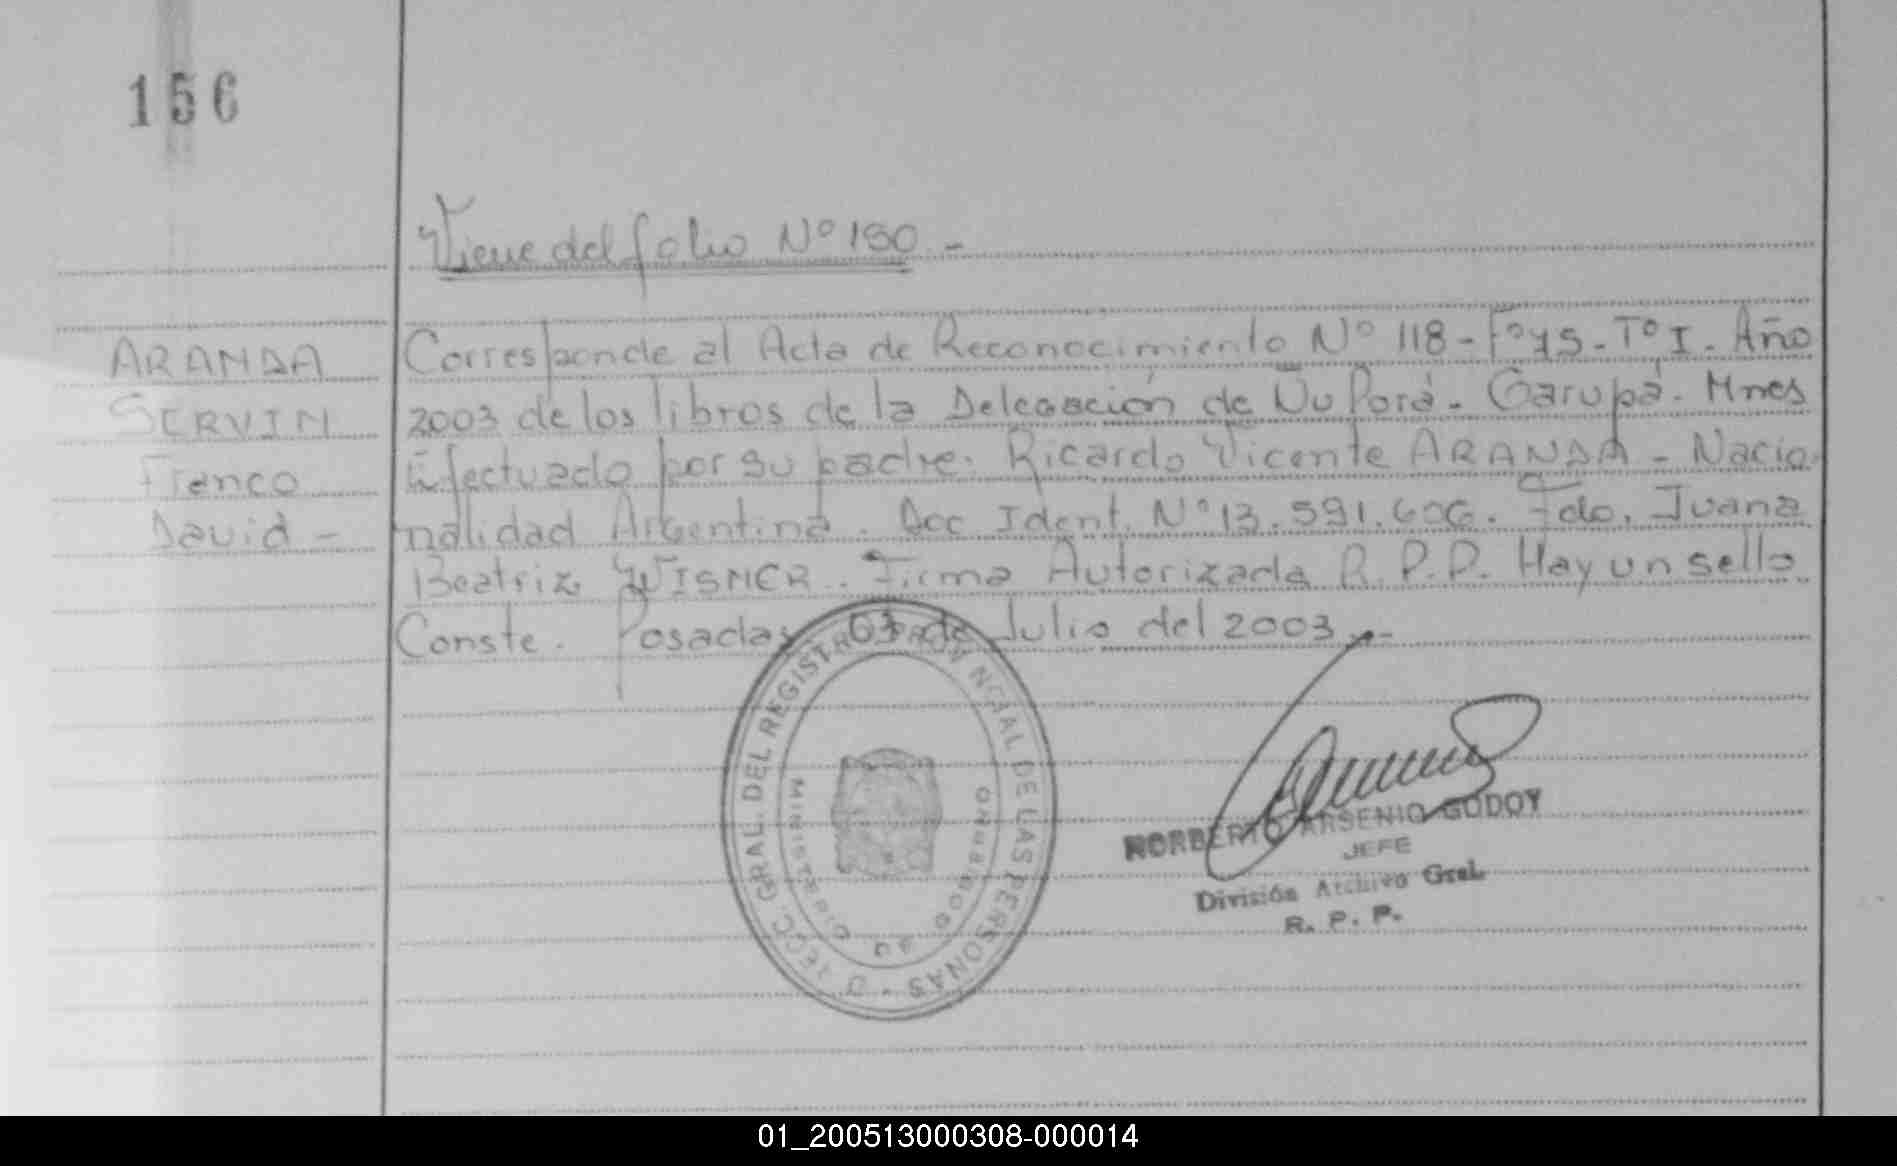 156
Viene del folio Nº 190 -
ARANDA
SERVIN
Franco
David -
Corresponde al Acta de Reconocimiento Nº 118 - Fº 45 - Tº I - Año
2003 de los libros de la Delegación de Ñu Porá - Garupá - Mnes
Efectuado por su padre. Ricardo Vicente ARANDA - Nacio
nalidad Argentina. Doc Ident. Nº 13.591.606. Fdo. Juana
Beatriz WISNER. Firma Autorizada R.P.P. Hay un sello
Conste. Posadas 03 de Julio del 2003.-
GRAL. DEL REGISTRO PROVINCIAL DE LAS PERSONAS
MINISTERIO DE GOBIERNO
NORBERTO ARSENIO GODOY
JEFE
División Archivo Gral.
R. P. P.
01_200513000308-000014